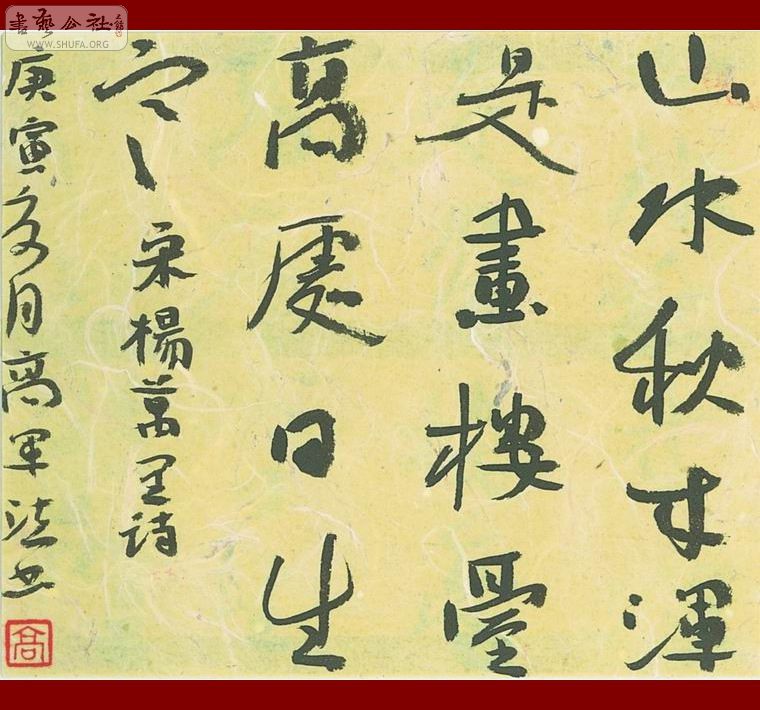 書藝公社
WWW.SHUFA.ORG
山水秋來渾
是畫樓臺
高處自生
寒 宋楊萬里詩
庚寅月高军法书
高